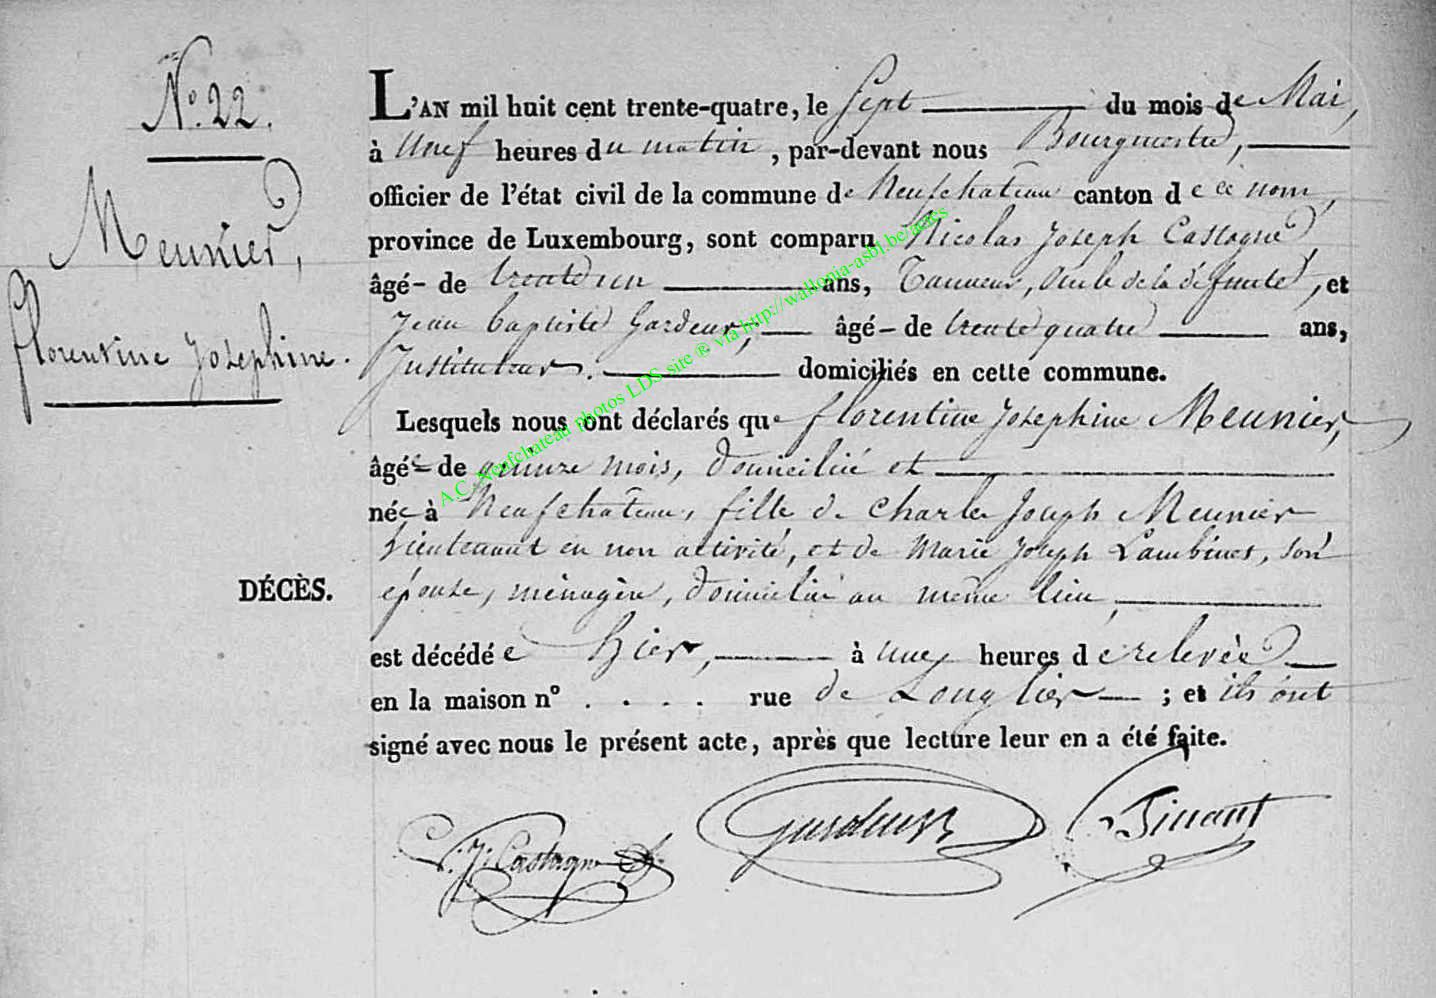 N.° 22.
Meunier,
florentine Josephine.
DÉCÈS.
L'AN mil huit cent trente-quatre, le Sept du mois de Mai,
à Neuf heures du matin, par-devant nous Bourgmestre,
officier de l'état civil de la commune de Neufchateau canton de ce nom,
province de Luxembourg, sont comparu Nicolas Joseph Castagne
âgé - de trente un ans, Tanneur, de la défunte, et
Jean baptiste Gardeur, âgé - de trente quatre ans,
Instituteur. domiciliés en cette commune.
Lesquels nous ont déclarés que florentine Josephine Meunier,
âgée de quinze mois, domiciliée et
née à Neufchateau, fille de Charles Joseph Meunier
Lieutenant en non activité, et de Marie Joseph Lambinet, son
épouse, ménagère, domicilié au même lieu,
est décédée hier, à une heures de relevée
en la maison n° . . . . rue de Longlier ; et ils ont
signé avec nous le présent acte, après que lecture leur en a été faite.
N. J. Castagne Gardeur Tinant
A.C. Neufchateau photos LDS site ® via http://wallonia-asbl.be/actes